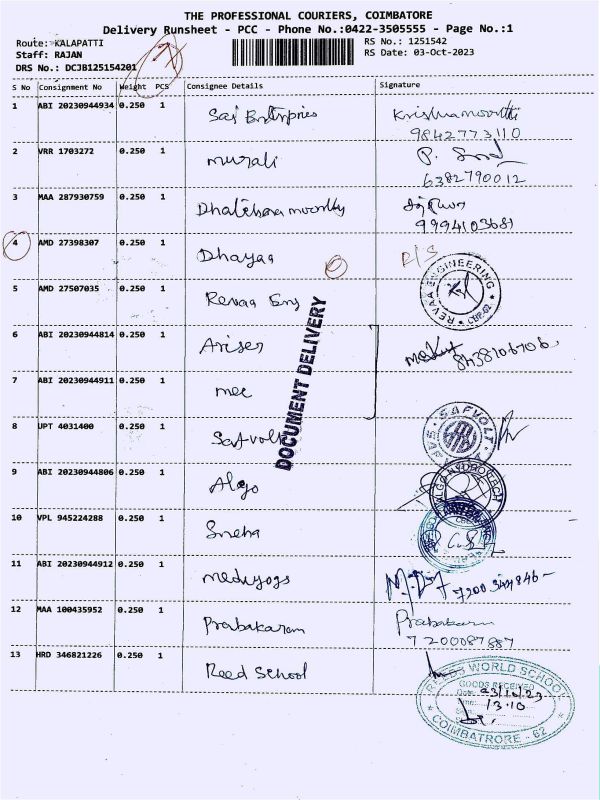 THE PROFESSIONAL COURIERS, COIMBATORE
Delivery Runsheet - PCC - Phone No.:0422-3505555 - Page No.:1
Route: KALAPATTI
RS No.: 1251542
Staff: RAJAN
RS Date: 03-Oct-2023
DRS No.: DCJB125154201
S No Consignment No Weight PCS Consignee Details Signature
1 ABI 20230944934 0.250 1 Sai Enterprises Krishnamoorthi
9842773110
2 VRR 1703272 0.250 1 murali P.
6382790012
3 MAA 287930759 0.250 1
9994103681
4 AMD 27398307 0.250 1 Dhayaa R/S
5 AMD 27507035 0.250 1 Revaa Eng REVAA ENGINEERING
6 ABI 20230944814 0.250 1 Ariser 8438106706
7 ABI 20230944911 0.250 1 mec
DOCUMENT DELIVERY
8 UPT 4031400 0.250 1 Safvolt SAFVOLT
9 ABI 20230944806 0.250 1 Algo
10 VPL 945224288 0.250 1 Sneha
11 ABI 20230944912 0.250 1 Mediyogs
12 MAA 100435952 0.250 1 Prabakaram Prabakaran
7200087887
13 HRD 346821226 0.250 1 Reed School
REEDS WORLD SCHOOL
GOODS RECEIVED
Date 03/10/23
Time 13.10
COIMBATRORE - 62